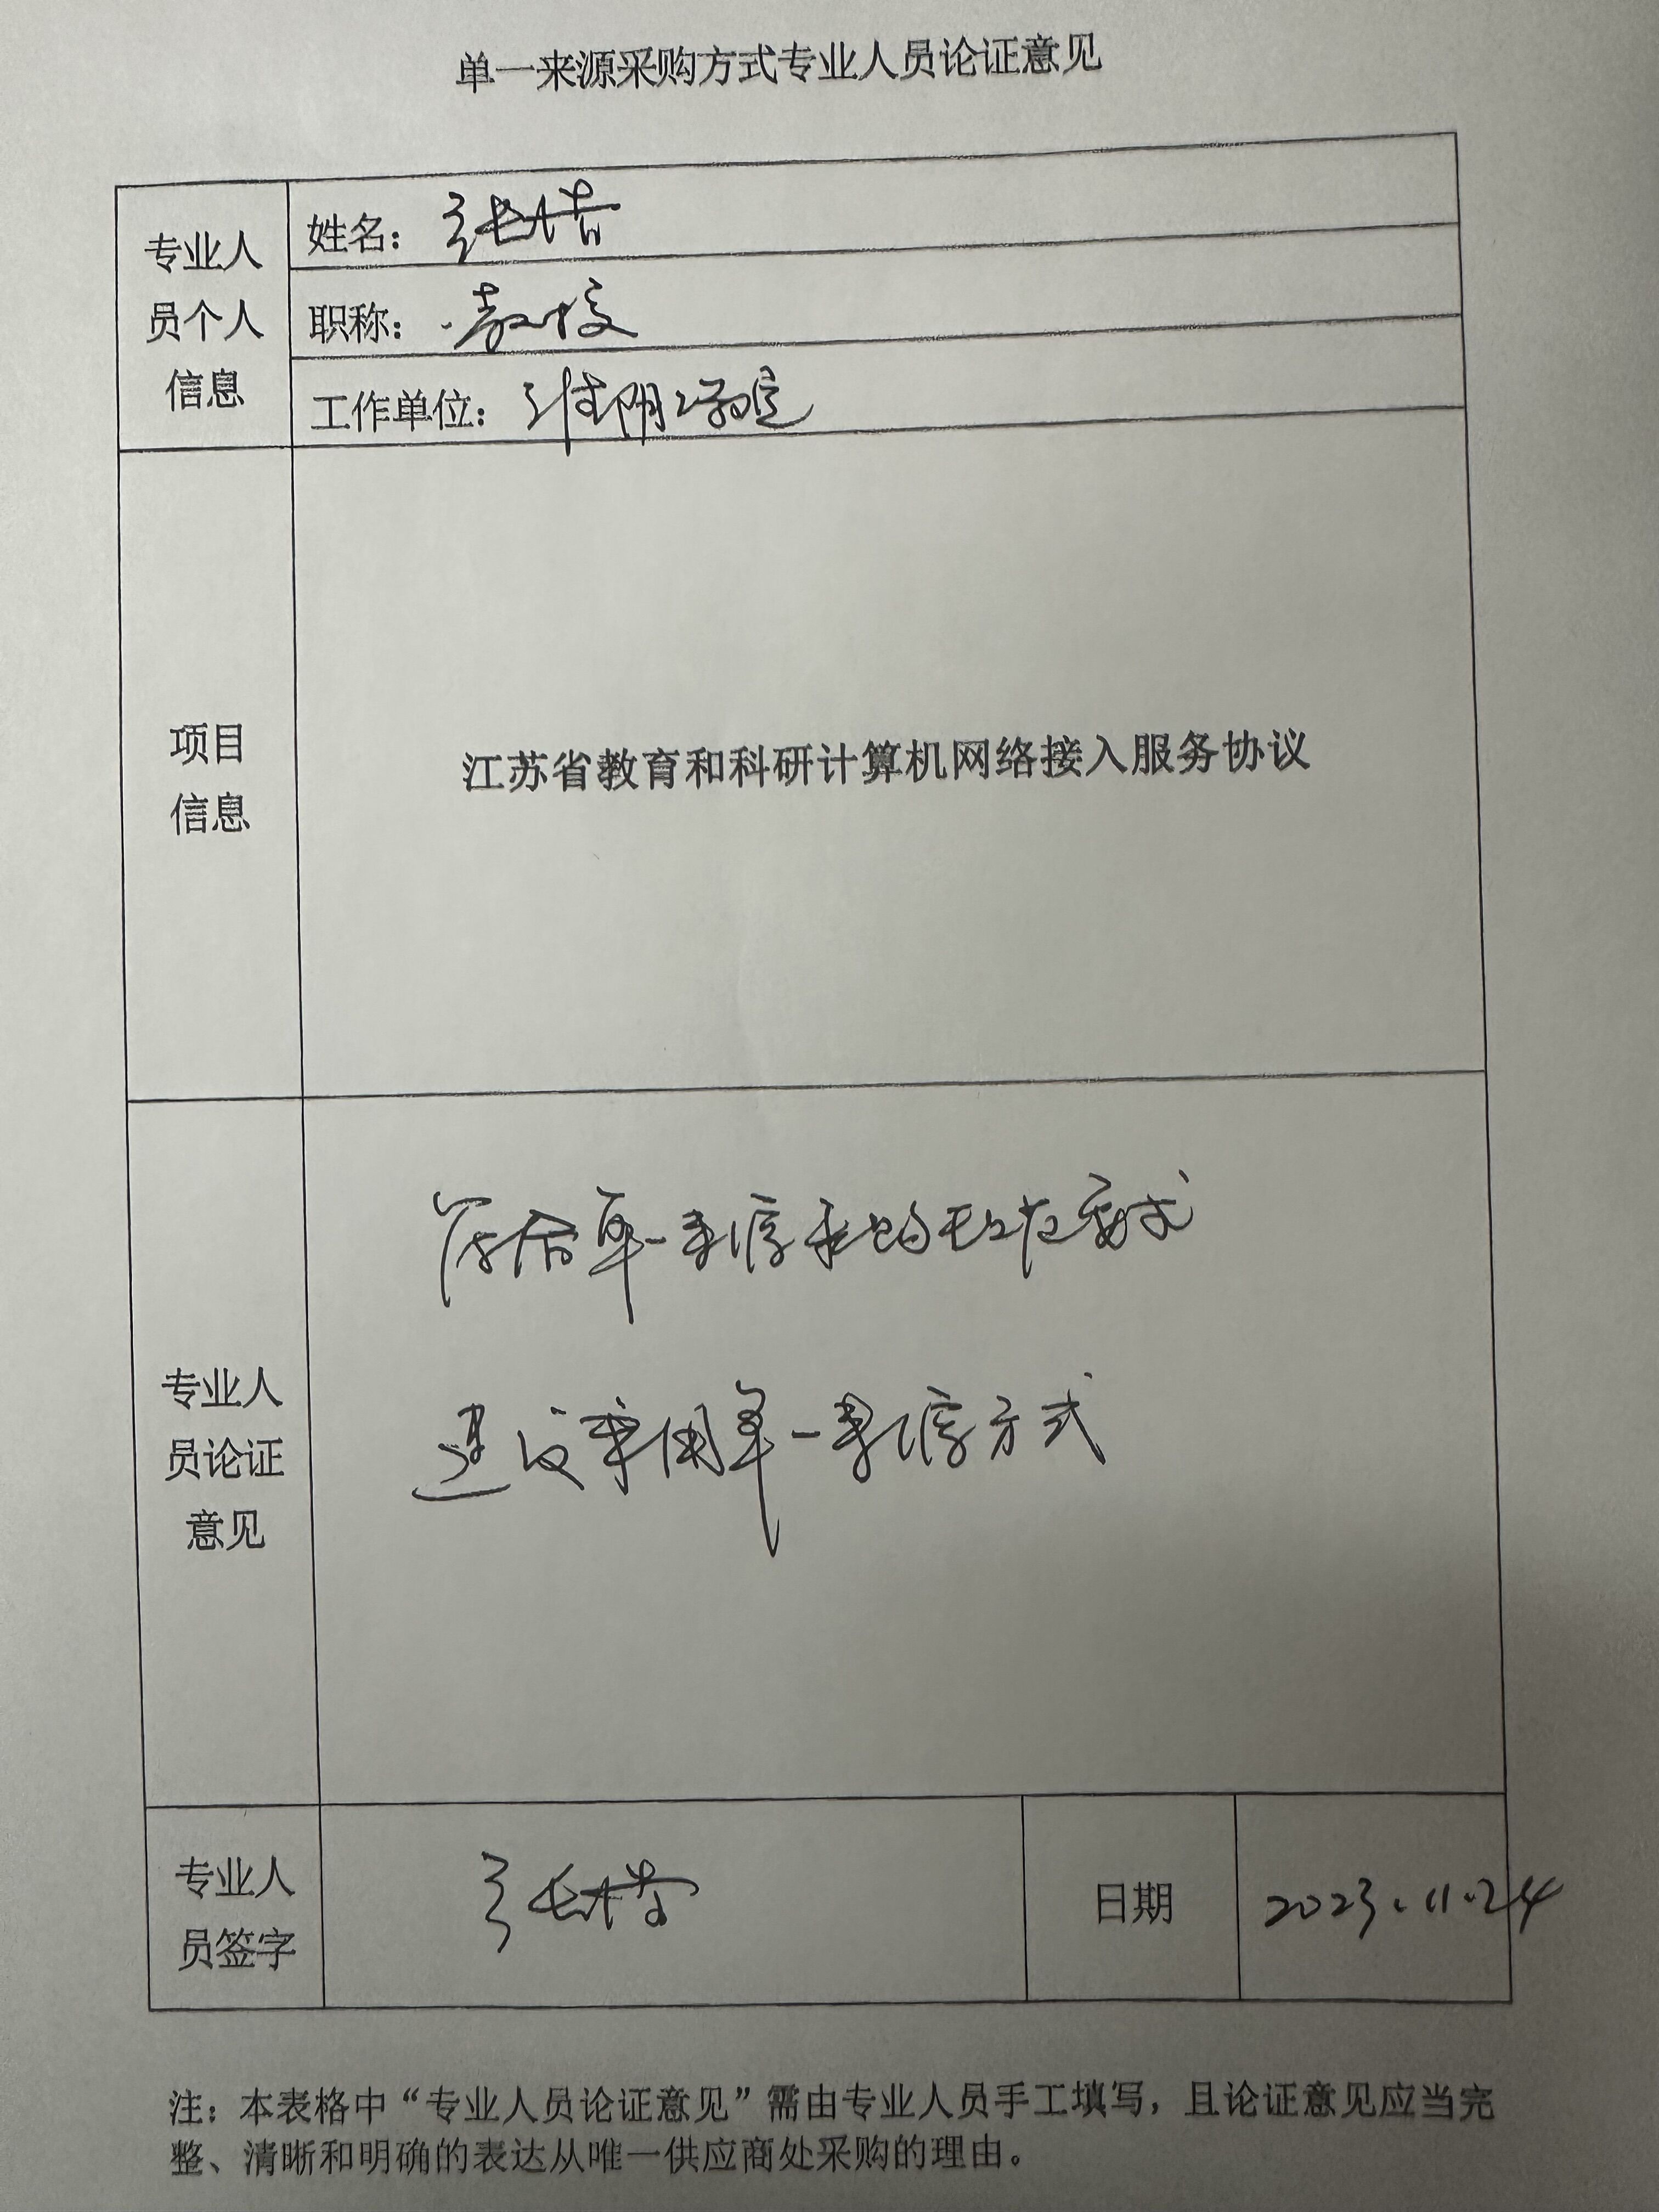 单一来源采购方式专业人员论证意见
专业人员个人信息
姓名：张
职称：教授
工作单位：淮阴工学院
项目信息
江苏省教育和科研计算机网络接入服务协议
专业人员论证意见
符合单一来源采购 要求
建议采用单一来源方式
专业人员签字
张
日期
2023.11.24
注：本表格中“专业人员论证意见”需由专业人员手工填写，且论证意见应当完
整、清晰和明确的表达从唯一供应商处采购的理由。